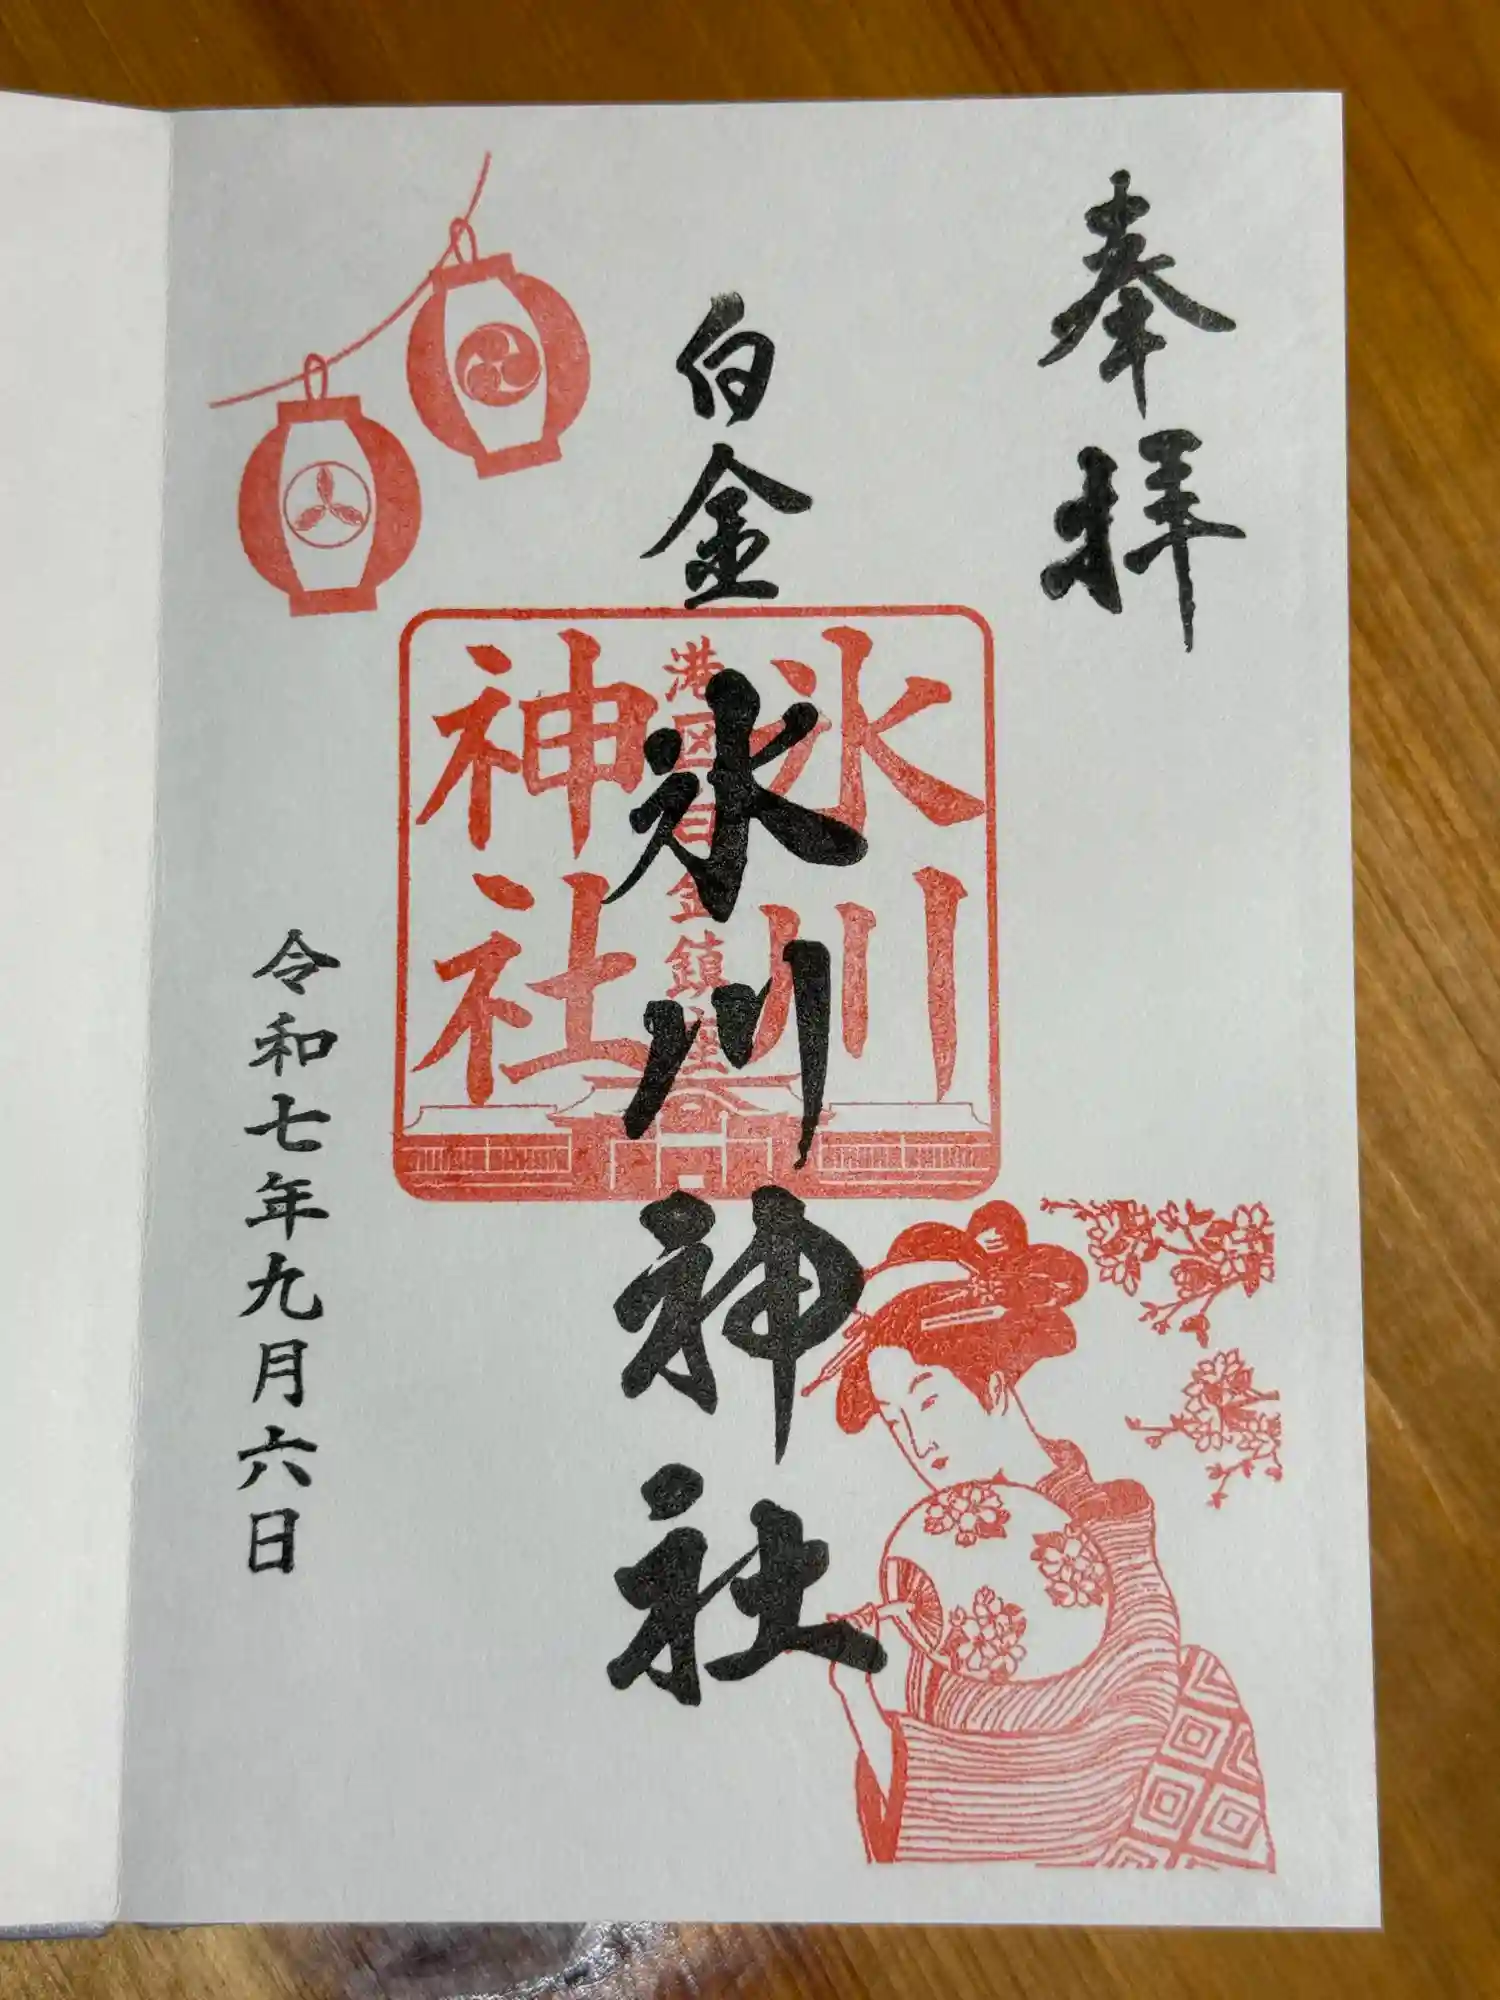 奉拝
白金
氷川神社
氷川
港区白金鎮座
神社
令和七年九月六日